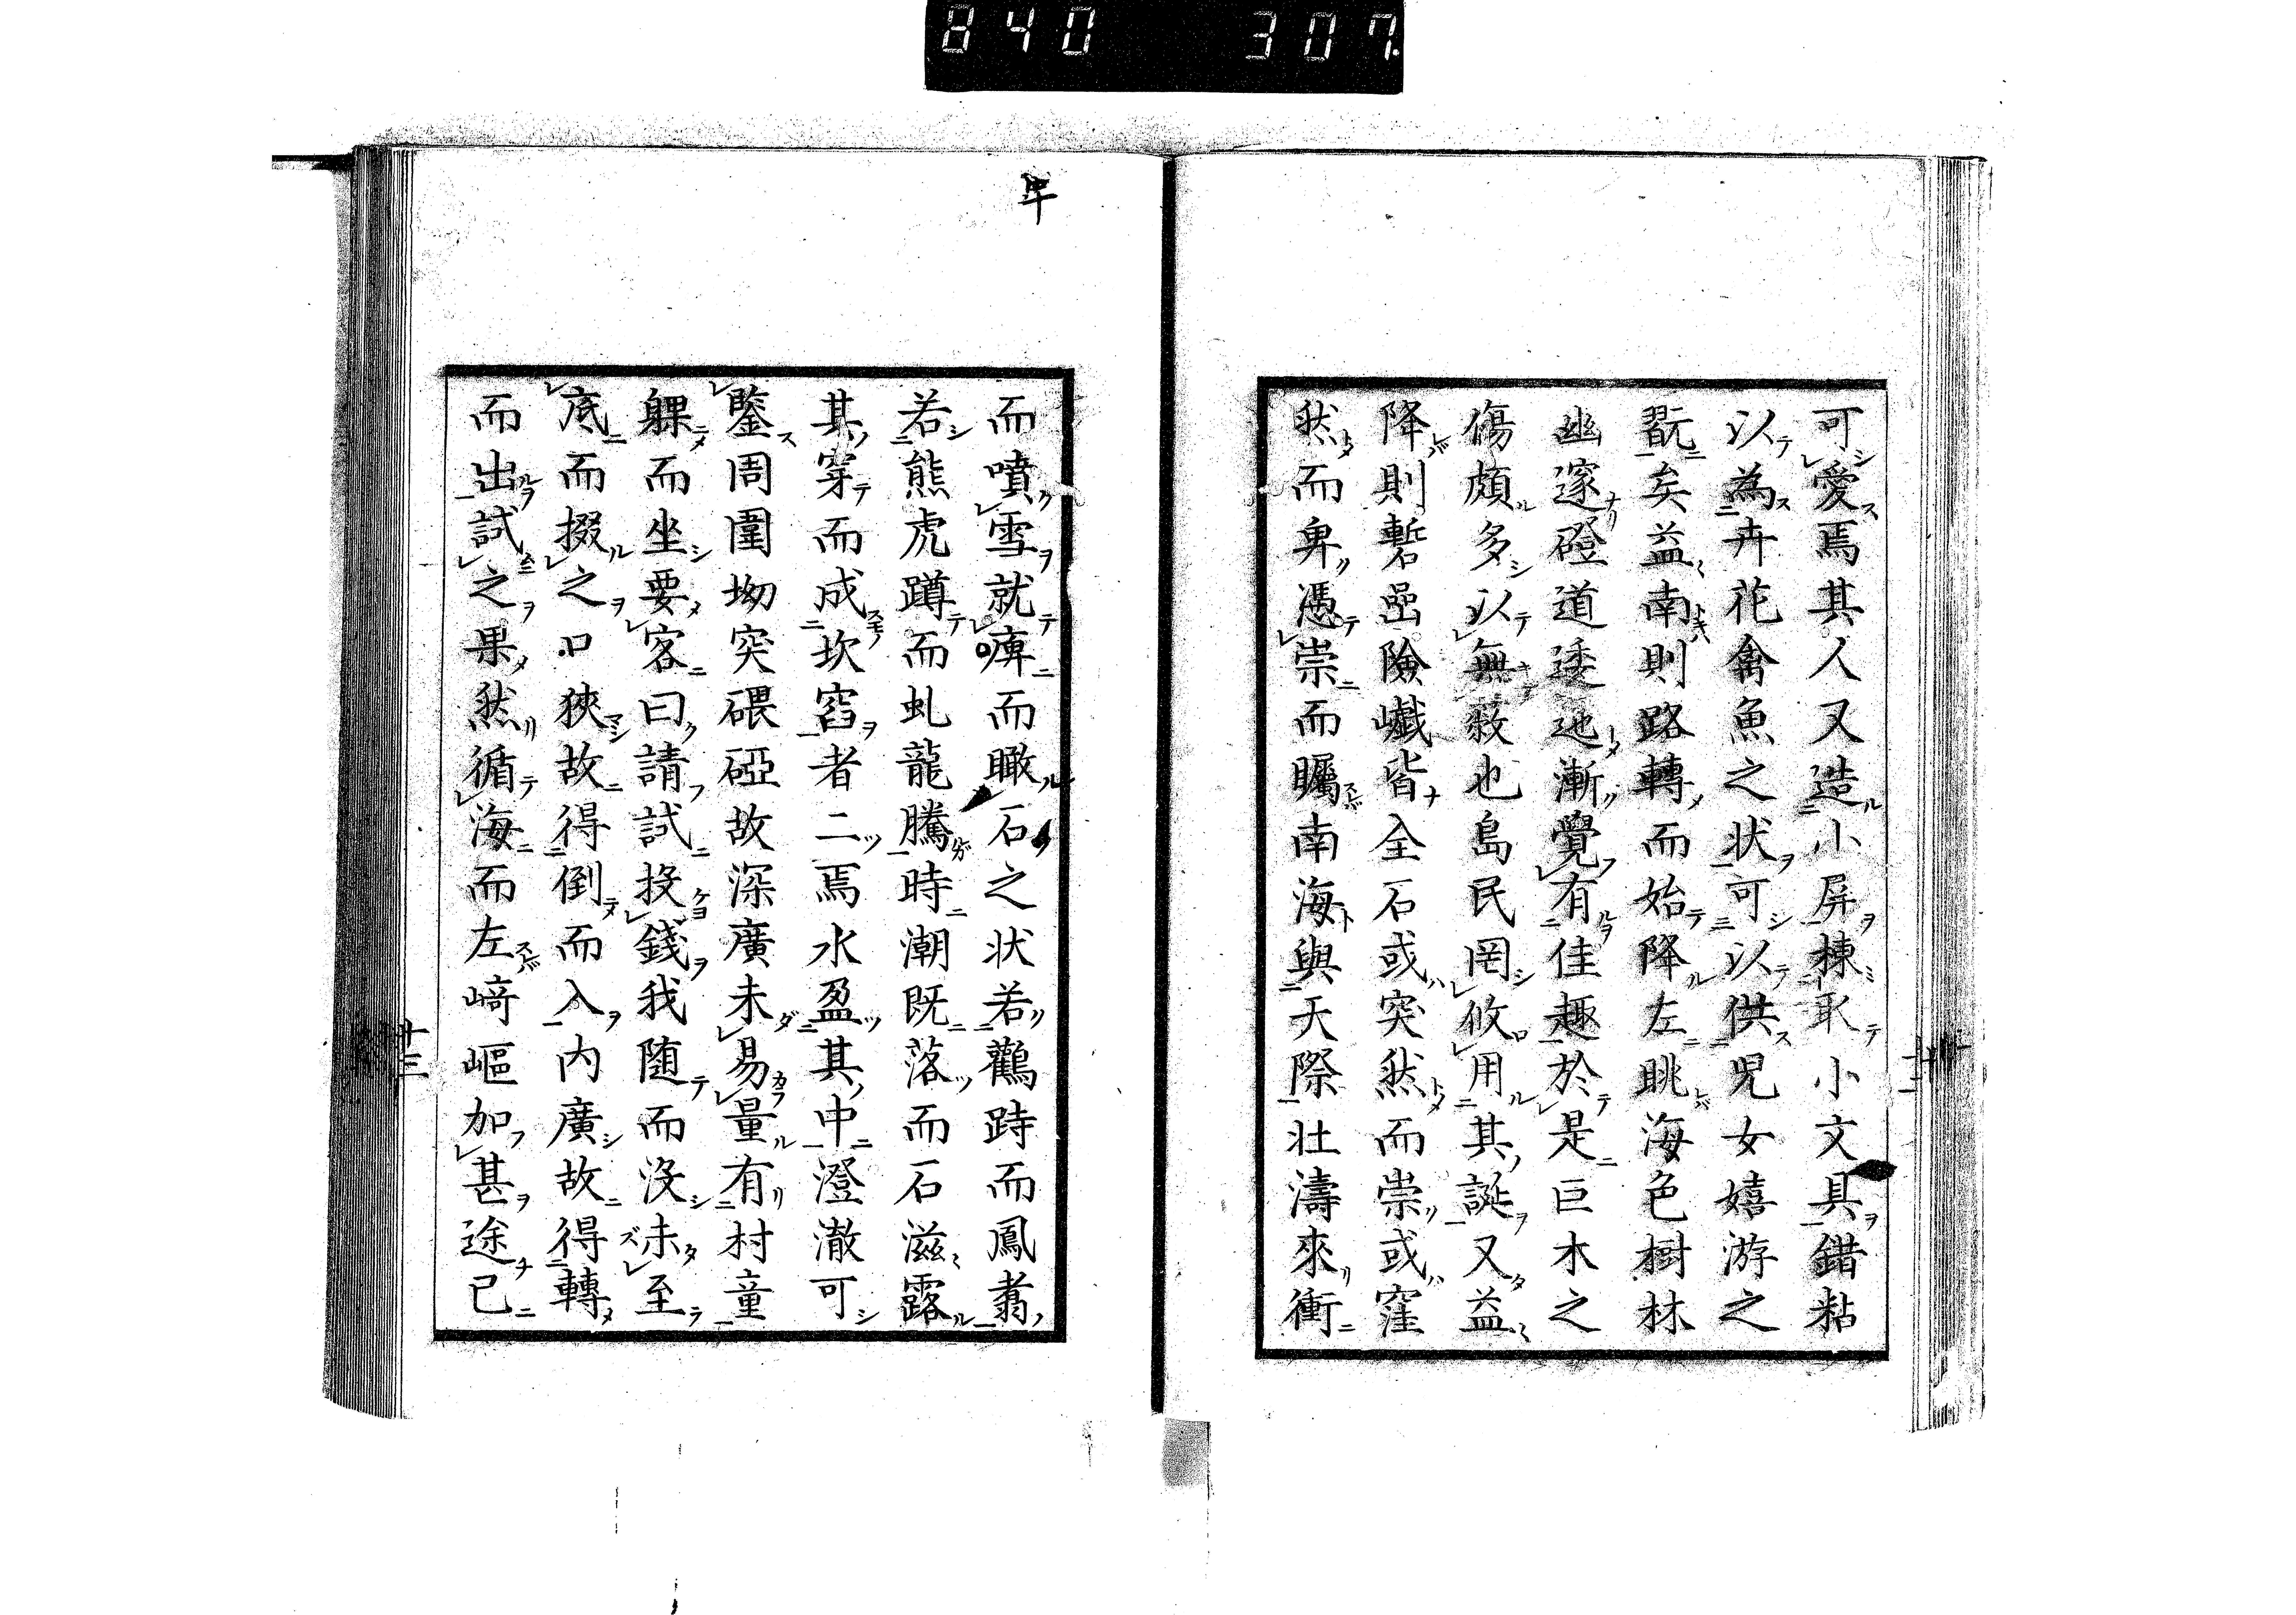 840 307
可愛焉其人又造小屏棟取小文具錯粘
以為卉花禽魚之狀可以供児女嬉游之
翫矣益南則路轉而始降左眺海色樹林
幽邃磴道逶迤漸覺有佳趣於是巨木之
傷頗多以無薮也島民罔攸用其誕又益
降則蹔嵒險巇皆全石或突然而崇或窪
然而卑憑崇而矚南海與天際壮濤來衝
而噴雪就庳而瞰石之状若鸛跱而鳳翥
若熊虎蹲而虬龍騰時潮既落而石滋露
其穿而成坎窞者二焉水盈其中澄澈可
鑒周圍坳突碨砈故深廣未易量有村童
躶而坐要客曰請試投錢我随而没未至
底而掇之口狹故得倒而入内廣故得轉
而出試之果然循海而左﨑嶇加甚途已